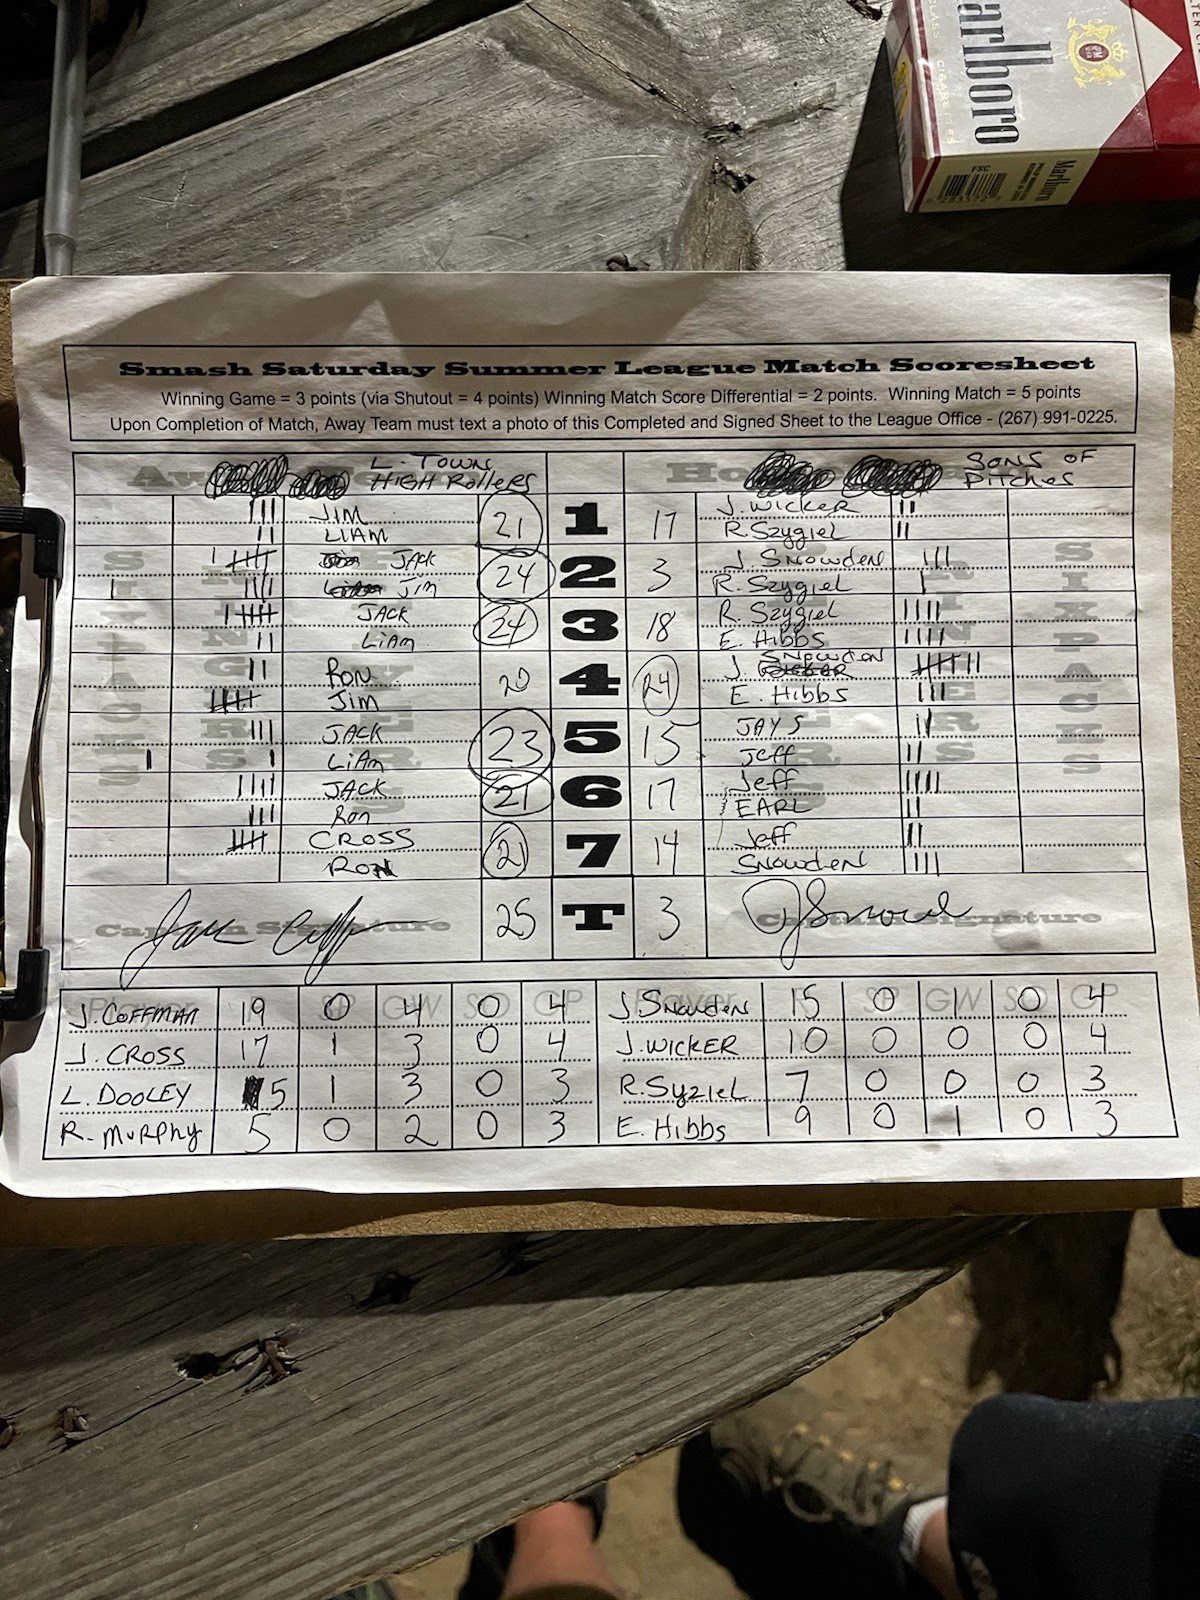 Marlboro
CLASS A CIGARETTES
FSC
Marlboro
Smash Saturday Summer League Match Scoresheet
Winning Game = 3 points (via Shutout = 4 points) Winning Match Score Differential = 2 points. Winning Match = 5 points
Upon Completion of Match, Away Team must text a photo of this Completed and Signed Sheet to the League Office - (267) 991-0225.
L-TOWN HIGH ROLLERS SONS OF PITCHES
JIM 21 1 17 J. WICKER
LIAM R. SZYGIEL
JACK 24 2 3 J. SNOWDEN
JIM R. SZYGIEL
JACK 24 3 18 R. SZYGIEL
LIAM E. HIBBS
RON 20 4 24 J. SNOWDEN
JIM E. HIBBS
JACK 23 5 15 JAY S
LIAM JEFF
JACK 21 6 17 JEFF
RON EARL
CROSS 21 7 14 JEFF
RON SNOWDEN
Captain Signature 25 T 3 Captain Signature
Player SP GW SO GP Player SP GW SO GP
J. COFFMAN 19 0 4 0 4 J. SNOWDEN 15 0 1 0 4
J. CROSS 17 1 3 0 4 J. WICKER 10 0 0 0 4
L. DOOLEY 5 1 3 0 3 R. SYZIEL 7 0 0 0 3
R. MURPHY 5 0 2 0 3 E. HIBBS 9 0 1 0 3